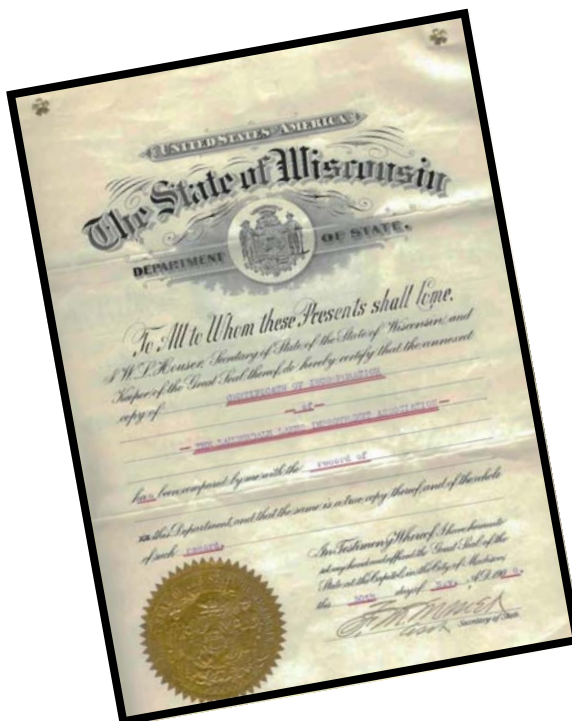 UNITED STATES OF AMERICA
The State of Wisconsin
DEPARTMENT OF STATE.
To All to Whom these Presents shall Come,
I W. L. Houser, Secretary of State of the State of Wisconsin, and
Keeper of the Great Seal thereof, do hereby certify that the annexed
copy of CERTIFICATE OF INCORPORATION
— of —
— THE LAUDERDALE LAKES IMPROVEMENT ASSOCIATION —
has been compared by me with the record of
this Department, and that the same is a true copy thereof, and of the whole
of such record.
In Testimony Whereof, I have hereunto
set my hand and affixed the Great Seal of the
State at the Capitol, in the City of Madison,
this 30th day of May, A.D. 190
Secretary of State